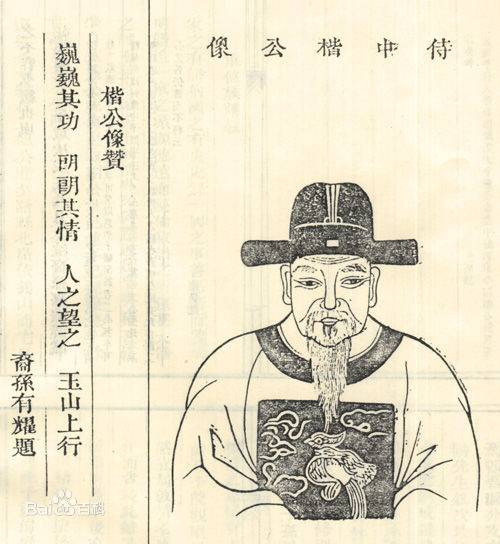 侍中楷公像
楷公像贊
巍巍其功 朗朗其情 人之望之 玉山上行
裔孫有耀題
Bai百科